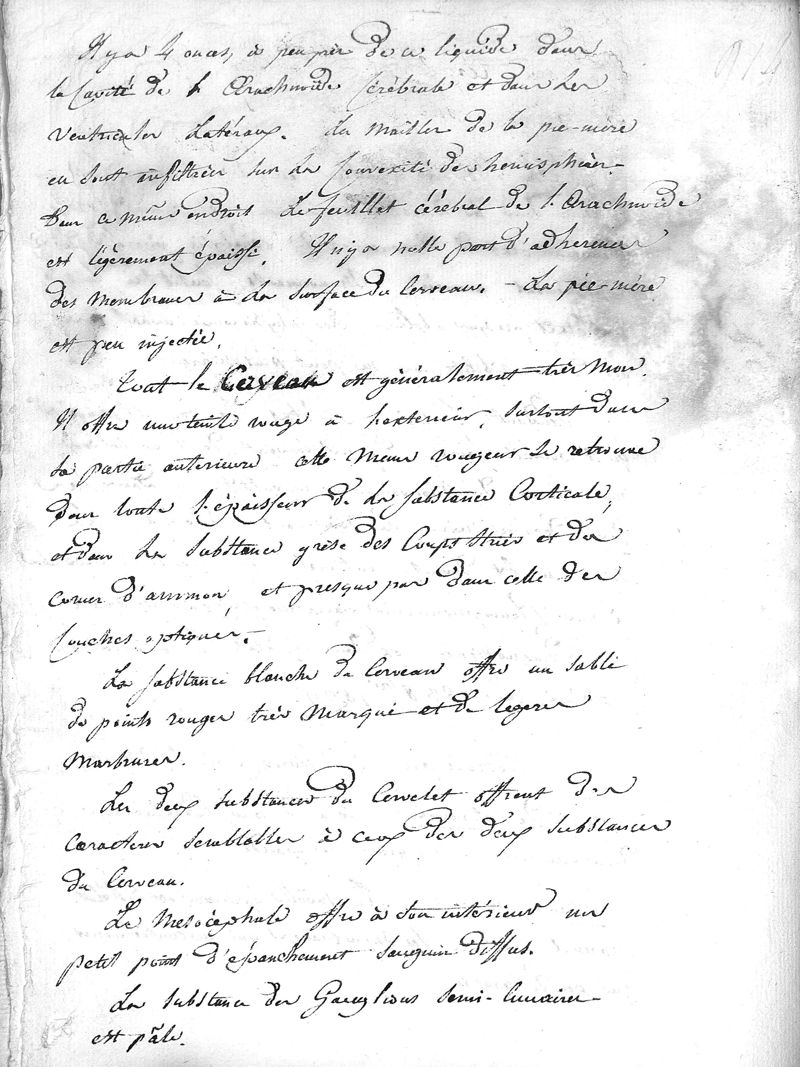 Il y a 4 onces, à peu près de ce liquide dans
la cavité de l'Arachnoïde cérébrale et dans les
ventricules latéraux. Les mailles de la pie-mère
en sont infiltrées sur la convexité des hémisphères.
Dans ce même endroit le feuillet cérébral de l'Arachnoïde
est légèrement épaissi. Il n'y a nulle part d'adhérences
des membranes à la surface du Cerveau. - La pie-mère
est peu injectée.
Tout le Cerveau est généralement très mou.
Il offre une teinte rouge à l'extérieur, surtout dans
sa partie antérieure cette même rougeur se retrouve
dans toute l'épaisseur de la substance Corticale,
et dans la substance grise des Corps Striés et des
cornes d'ammon, et presque pas dans celle des
couches optiques.-
La substance blanche du Cerveau offre un sablé
de points rouges très marqué et de légères
Marbrures.
Les deux substances du Cervelet offrent des
caractères semblables à ceux des deux substances
du Cerveau.
Le Mésocéphale offre à son intérieur un
petit point d'épanchement sanguin diffus.
La substance des Ganglions semi-lunaires-
est pâle.